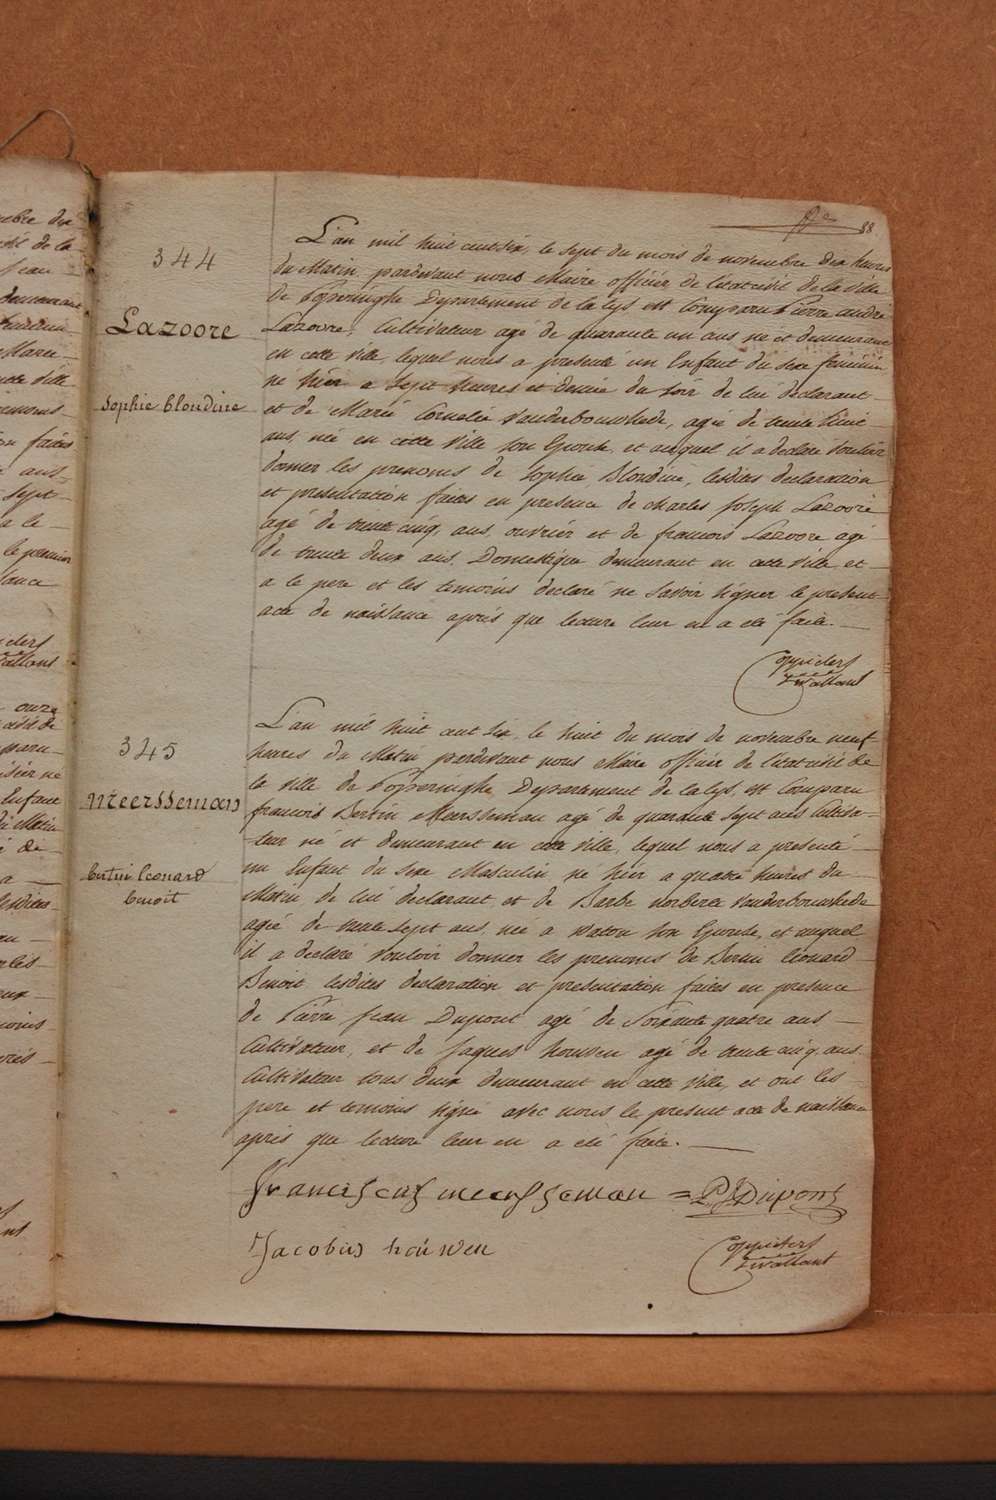 88
344
Lazoore
Sophie Blondine
L'an mil huit cent six, le sept du mois de novembre dix heures
du Matin, pardevant nous Maire officier de l'etat civil de la ville
de Poperinghe Departement de la Lys, est Comparu Pierre andré
Lazoore, Cultivateur agé de quarante un ans né et demeurant
en cette ville, lequel nous a presenté un Enfant du sexe feminin
né hier a sept heures et demie du soir de lui declarant
et de Marie Cornelie Vanderbouwhede, agée de trente huit
ans, née en cette Ville son Epouse, et auquel il a declaré vouloir
donner les prenoms de Sophie Blondine, lesdites declaration
et presentation faites en presence de charles Joseph Lazoore
agé de trente cinq ans, ouvrier et de francois Lazoore agé
de trente deux ans, Domestique demeurant en cette ville et
a le pere et les temoins declaré ne savoir signer le present
acte de naissance après que lecture leur en a été faite.
345
Meersseman
bertin leonard
benoit
L'an mil huit cent six, le huit du mois de novembre neuf
heures du Matin pardevant nous Maire officier de l'etat civil de
la ville de Poperinghe Departement de la Lys, est Comparu
francois Bertin Meersseman agé de quarante sept ans Cultiva-
teur né et demeurant en cette ville, lequel nous a presenté
un Enfant du sexe Masculin né hier a quatre heures du
Matin de lui declarant, et de Barbe norberte Vanderbouwhede
agée de trente sept ans, née a Watou son Epouse, et auquel
il a declaré vouloir donner les prenoms de Bertin léonard
Benoit lesdites declaration et presentation faites en presence
de Pierre Jean Dupont agé de soixante quatre ans
Cultivateur, et de Jaques houwen agé de trente cinq ans
Cultivateur tous deux demeurant en cette ville, et ont les
pere et temoins signé avec nous le present acte de naissance
après que lecture leur en a été faite.
franciscus meersseman = P J Dupont
Jacobus houwen